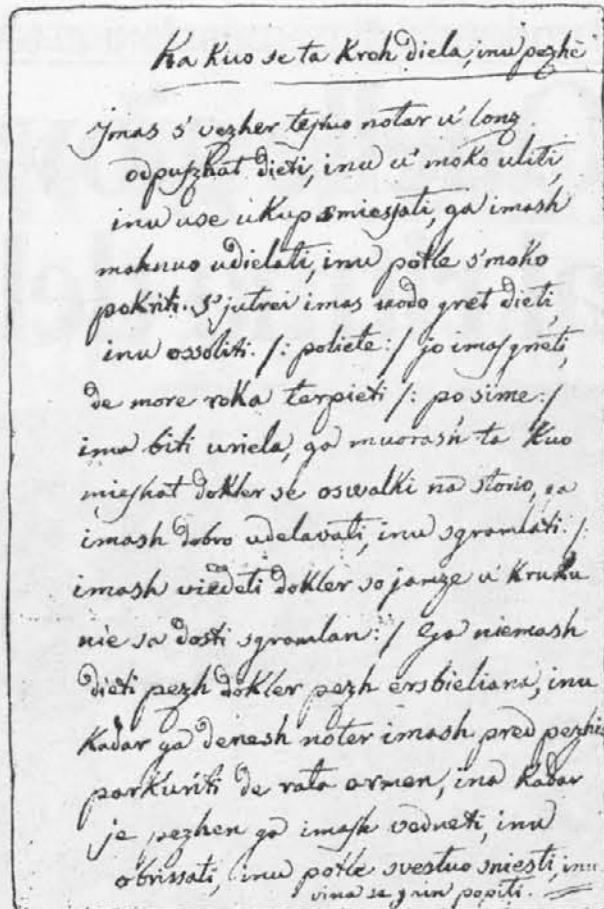 Ka Kuo se ta Kroh diela, inu pezhe
Jmas s' vezher tejstuo notar u' long
odpuszhat dieti, inu u' moko uliti,
inu use ukup smiesſati, ga imash
mahnuo udielati, inu potle s' moko
pokriti. S' jutrei imas uodo gret dieti,
inu ossoliti. /: poliete :/ jo imaſ grieti,
de more roka terpieti /: po sime :/
ima biti uriela, ga muorash ta Kuo
mieſhat dokler se oswalki na storio, ga
imash dobro udelavati, inu sgramlati. /:
imash viedeti dokler so jamze u' Kruhu
nie sa dosti sgramlan :/ Ga niemash
dieti pezh dokler pezh ersbieliana, inu
Kadar ga denesh noter imash pred pezhio
parkuriti de rata armen, inu Kadar
je pezhen ga imash vedneti, inu
obrissati, inu potle svestuo sniesti, inu
vina se grin popiti.